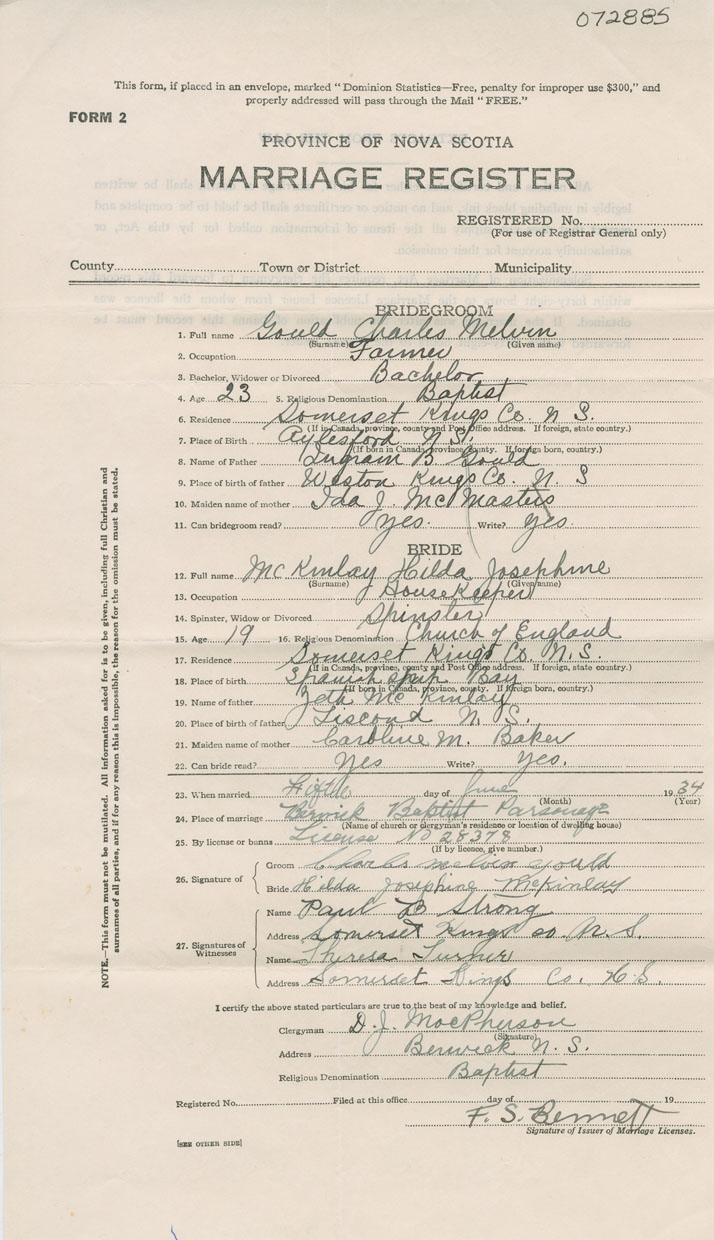 072885
This form, if placed in an envelope, marked "Dominion Statistics—Free, penalty for improper use $300," and
properly addressed will pass through the Mail "FREE."
FORM 2
PROVINCE OF NOVA SCOTIA
MARRIAGE REGISTER
REGISTERED No.
(For use of Registrar General only)
County Town or District Municipality
BRIDEGROOM
1. Full name Gould Charles Melvin
(Surname) (Given name)
2. Occupation Farmer
3. Bachelor, Widower or Divorced Bachelor
4. Age 23 5. Religious Denomination Baptist
6. Residence Somerset Kings Co. N. S.
(If in Canada, province, county and Post Office address. If foreign, state country.)
7. Place of Birth Aylesford N. S.
(If born in Canada, province, county. If foreign born, country.)
8. Name of Father Ingram B. Gould
9. Place of birth of father Weston Kings Co. N. S
10. Maiden name of mother Ida J. McMasters
11. Can bridegroom read? Yes. Write? Yes.
BRIDE
12. Full name McKinlay Hilda Josephine
(Surname) (Given name)
13. Occupation Housekeeper
14. Spinster, Widow or Divorced Spinster
15. Age 19 16. Religious Denomination Church of England
17. Residence Somerset Kings Co. N. S.
(If in Canada, province, county and Post Office address. If foreign, state country.)
18. Place of birth Spanish Ship Bay
(If born in Canada, province, county. If foreign born, country.)
19. Name of father McKinlay
20. Place of birth of father Liscond N. S.
21. Maiden name of mother Caroline M. Baker
22. Can bride read? Yes Write? Yes.
23. When married Fifth day of June 1934
(Month) (Year)
24. Place of marriage Berwick Baptist Parsonage
(Name of church or clergyman's residence or location of dwelling house)
25. By license or banns License No 28378
(If by licence, give number.)
26. Signature of Groom Charles melvin gould
Bride Hilda Josephine McKinlay
27. Signatures of Witnesses Name Paul B Strong
Address Somerset Kings co N. S.
Name Theresa Turner
Address Somerset Kings Co. N. S.
I certify the above stated particulars are true to the best of my knowledge and belief.
Clergyman D. J. MacPherson
(Signature)
Address Berwick N. S.
Religious Denomination Baptist
Registered No. Filed at this office day of 19
F. S. Bennett
Signature of Issuer of Marriage Licenses.
[SEE OTHER SIDE]
NOTE.—This form must not be mutilated. All information asked for is to be given, including full Christian and
surnames of all parties, and if for any reason this is impossible, the reason for the omission must be stated.